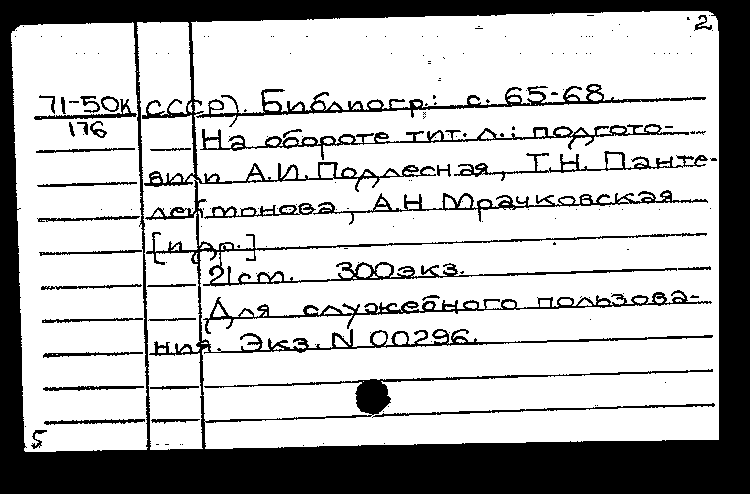 2
71-50к СССР). Библиогр.: с. 65-68.
176 На обороте тит. л.: подгото-
вили А.И. Подлесная, Т.Н. Панте-
леймонова, А.Н Мрачковская
[и др.]
21 cm. 300 экз.
Для служебного пользова-
ния. Экз. N 00296.
5